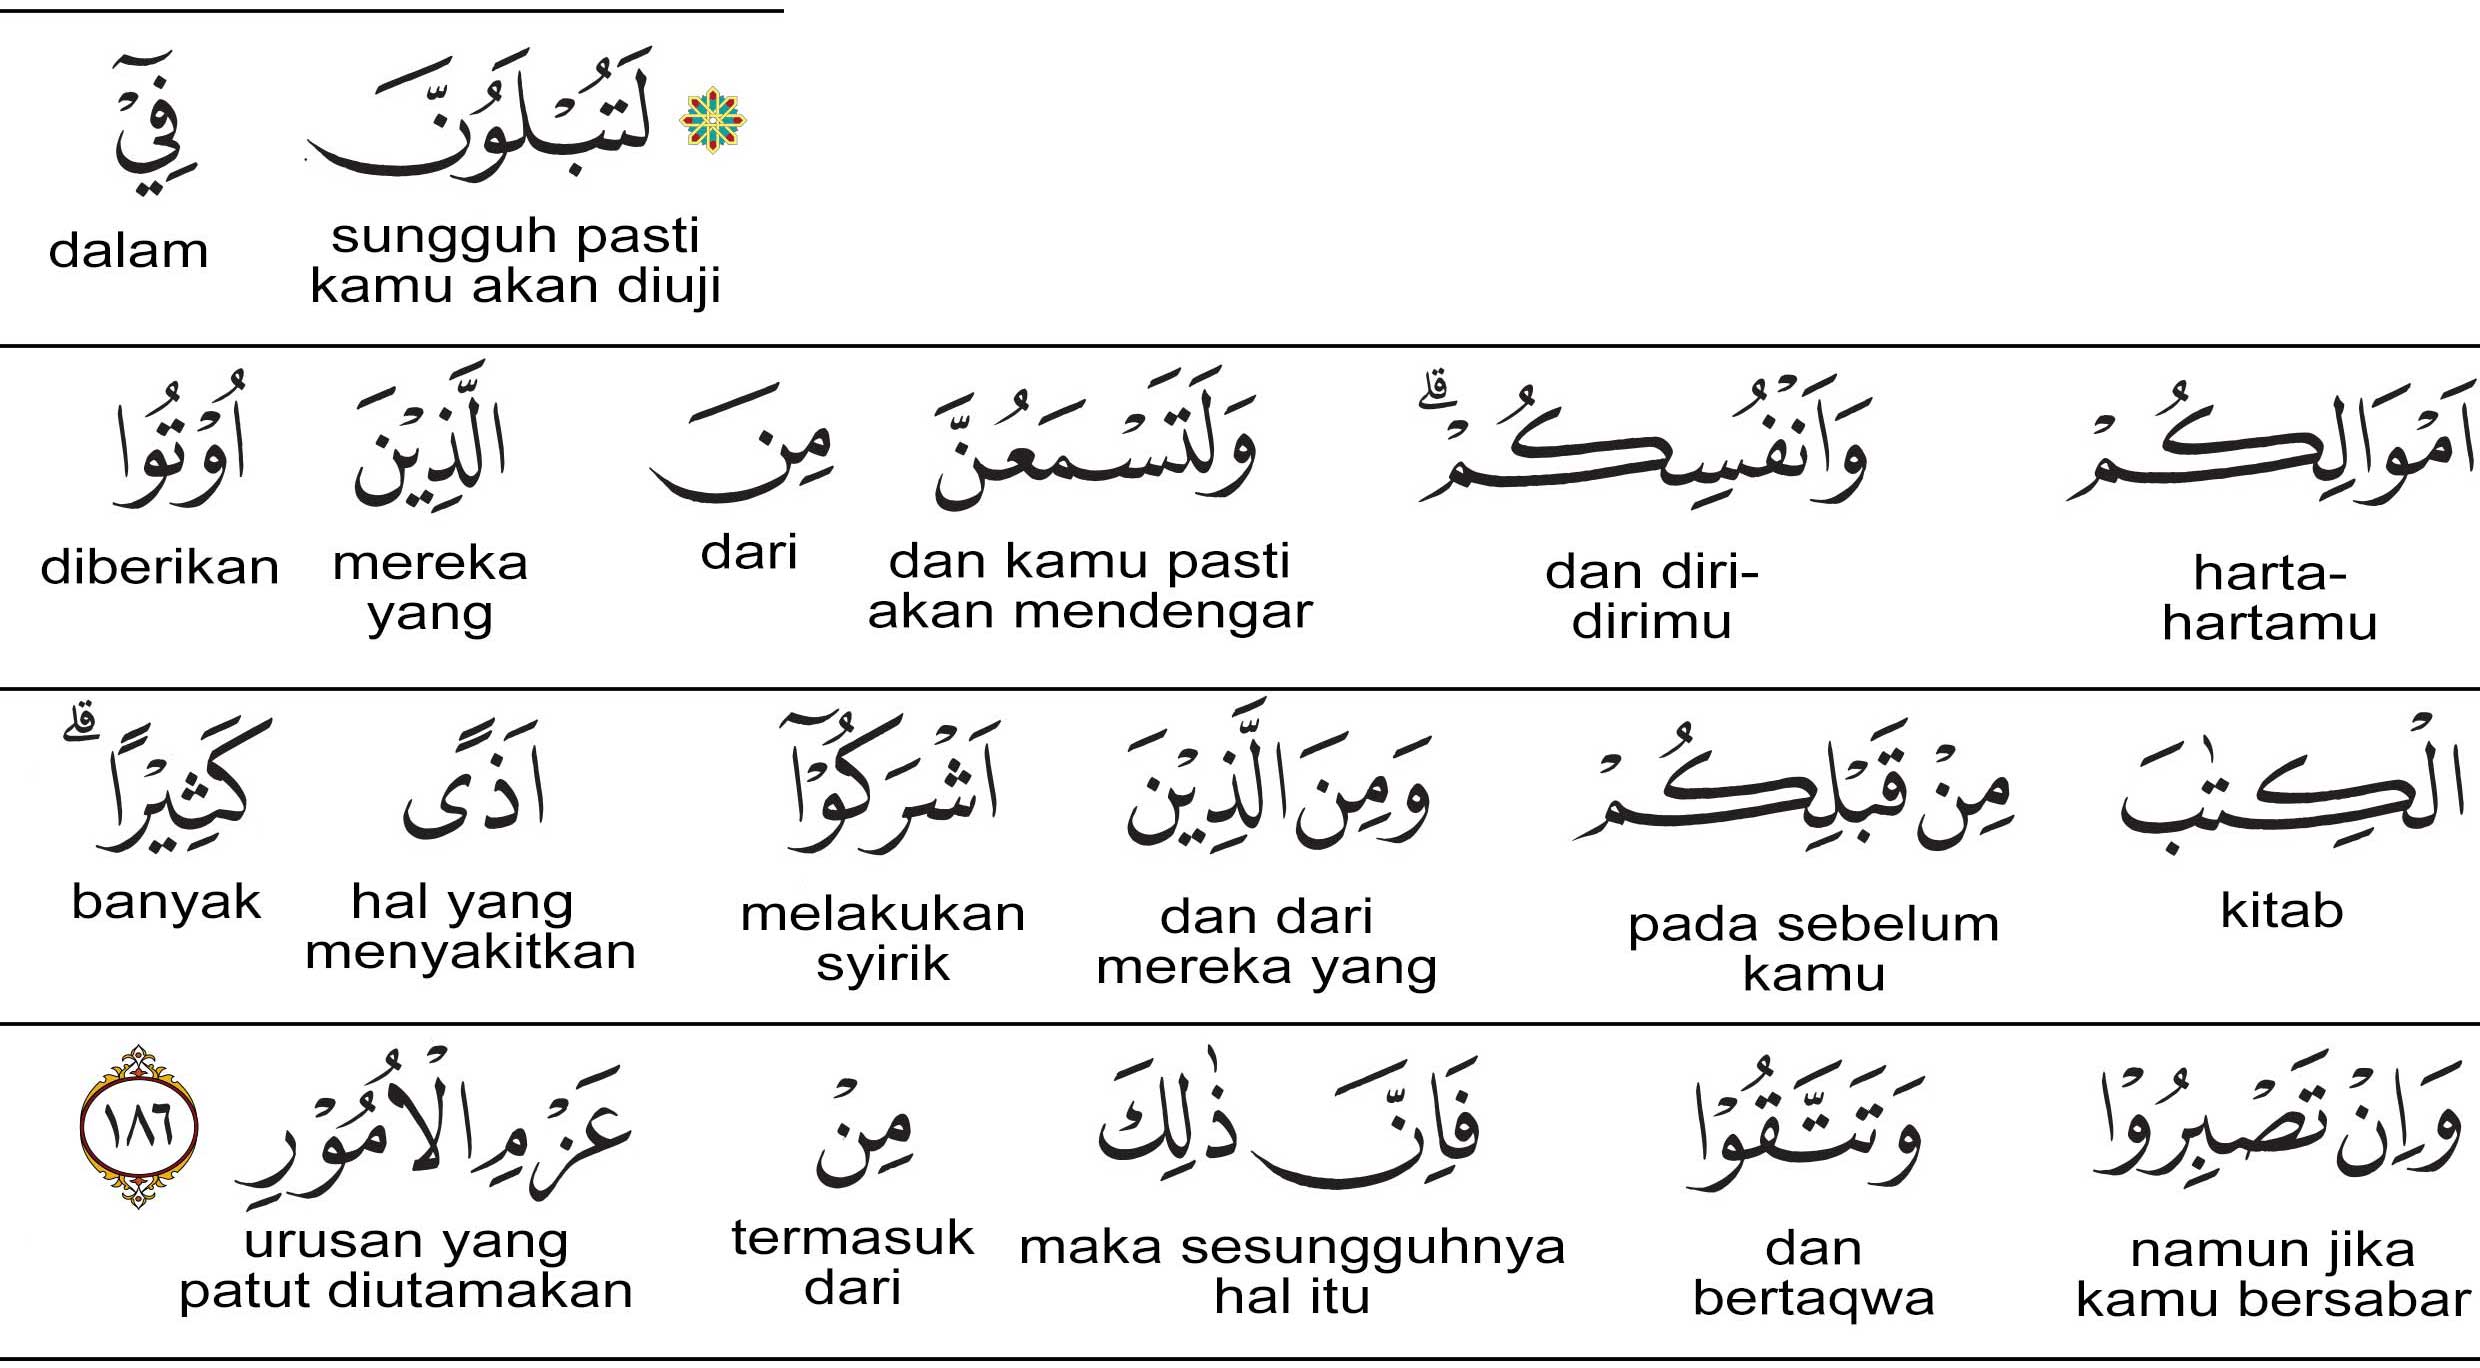 لَتُبْلَوُنَّ فِيْٓ
sungguh pasti dalam
kamu akan diuji
اَمْوَالِكُمْ وَاَنْفُسِكُمْۗ وَلَتَسْمَعُنَّ مِنَ الَّذِيْنَ اُوْتُوا
harta- dan diri- dan kamu pasti dari mereka diberikan
hartamu dirimu akan mendengar yang
الْكِتٰبَ مِنْ قَبْلِكُمْ وَمِنَ الَّذِيْنَ اَشْرَكُوْٓا اَذًى كَثِيْرًاۗ
kitab pada sebelum dan dari melakukan hal yang banyak
kamu mereka yang syirik menyakitkan
وَاِنْ تَصْبِرُوْا وَتَتَّقُوْا فَاِنَّ ذٰلِكَ مِنْ عَزْمِ الْاُمُوْرِ ١٨٦
namun jika dan maka sesungguhnya termasuk urusan yang
kamu bersabar bertaqwa hal itu dari patut diutamakan